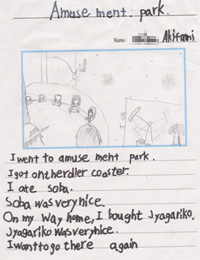 Amusement. park.
Name: Akifumi
I went to amuse ment park.
I got on the roller coaster.
I ate soba.
Soba was very nice.
On my way home, I bought Jyagariko.
Jyagariko was very nice.
I want to go there again